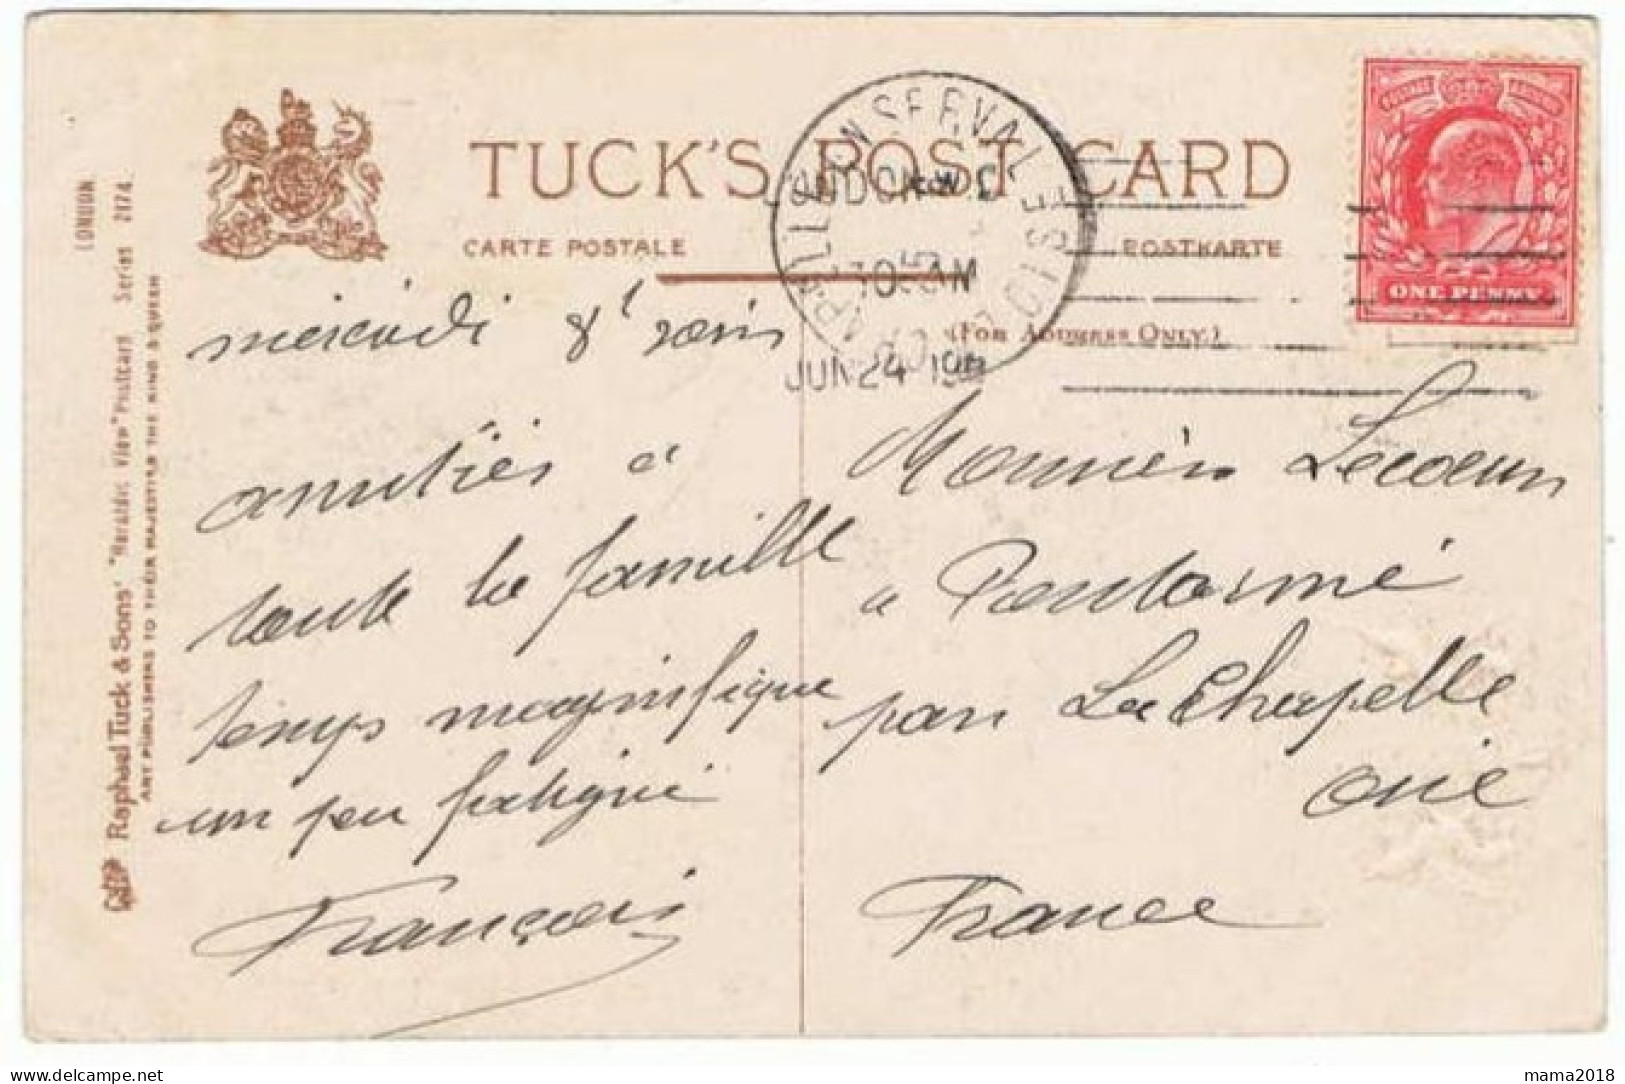 TUCK'S POST CARD
CARTE POSTALE
POSTKARTE
(FOR ADDRESS ONLY.)
LONDON W.C
JUN 24
OISE
ONE PENNY
POSTAGE
LONDON
Raphael Tuck & Sons' "Heraldic View" Postcard Series 2174.
ART PUBLISHERS TO THEIR MAJESTIES THE KING & QUEEN
mercredi 8h soir
amitiés à
toute la famille
temps magnifique
un peu fatigué
François
Monsieur Lecoeur
à
par La Chapelle
oise
France
mama2018